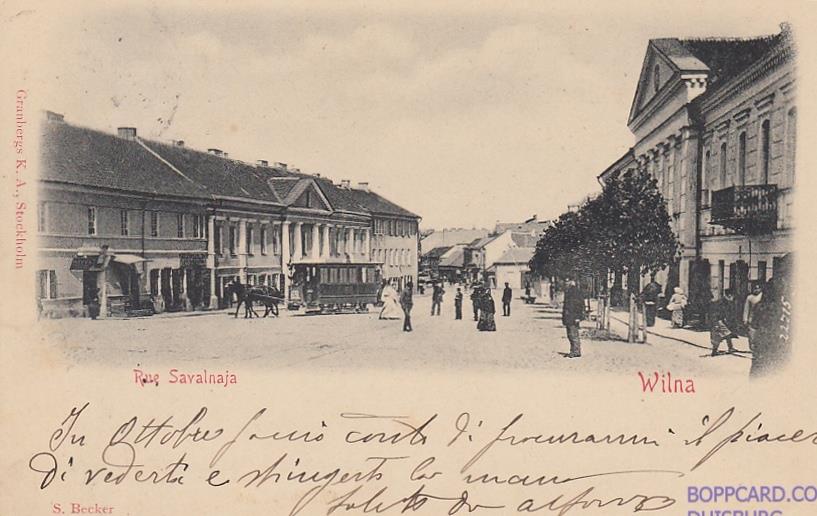 Granbergs K. A., Stockholm
22715
Rue Savalnaja
Wilna
In Ottobre faccio conto di procurarmi il piacer
di vederti e stringerti la mano
Saluti da Alfonso
S. Becker
BOPPCARD.CO
DUISBURG